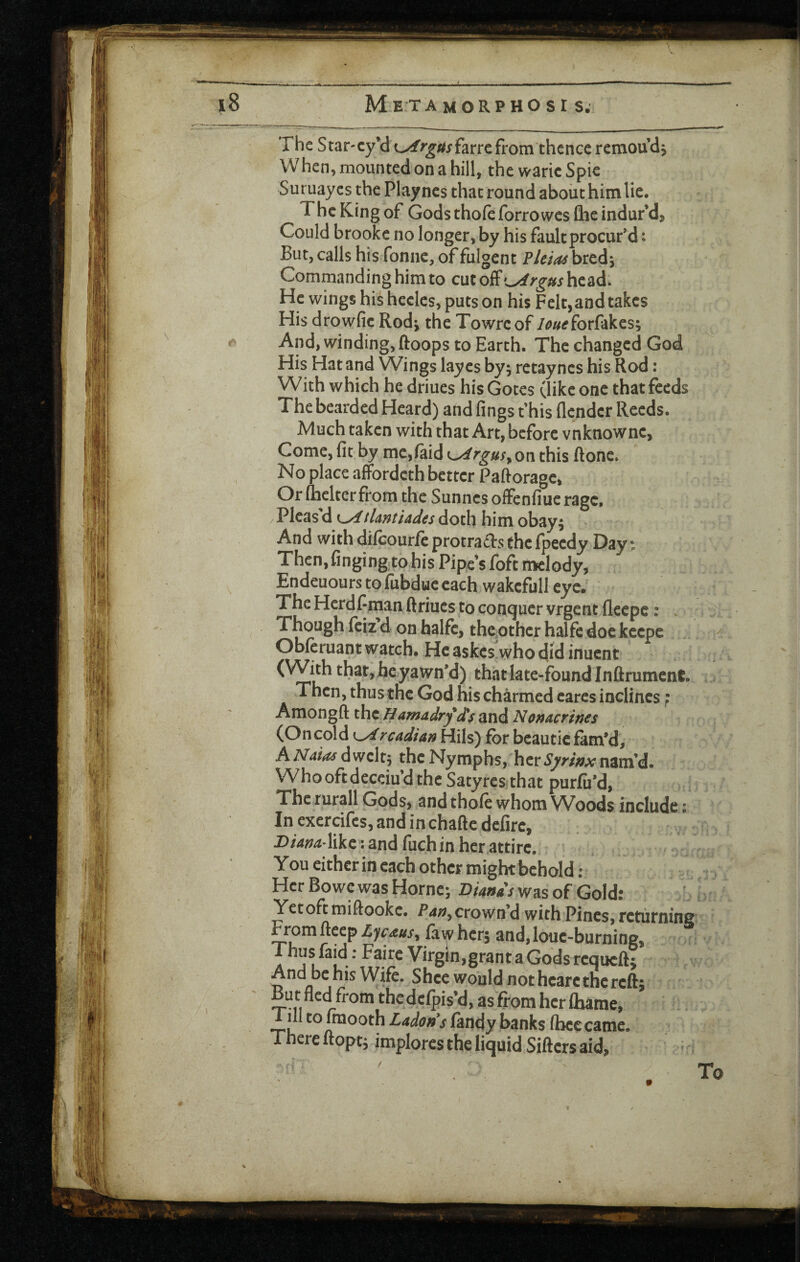 18 METAMORPHOSIS.
The Star-ey'd Argus farre from thence remou'd;
When, mounted on a hill, the warie Spie
Suruayes the Playnes that round about him lie.
The King of Gods thoſe ſorrowes ſhe indur'd,
Could brooke no longer, by his fault procur'd:
But, calls his ſonne, of fulgent Pleias bred;
Commanding him to cut off Argus head.
He wings his heeles, puts on his Felt, and takes
His drowſie Rod; the Towre of Ioue forſakes;
And, winding, ſtoops to Earth. The changed God
His Hat and Wings layes by; retaynes his Rod:
With which he driues his Gotes (like one that feeds
The bearded Heard) and ſings t'his ſlender Reeds.
Much taken with that Art, before vnknowne,
Come, ſit by me, ſaid Argus, on this ſtone.
No place affordeth better Paſtorage,
Or ſhelter from the Sunnes offenſiue rage.
Pleas'd Atlantiades doth him obay;
And with diſcourſe protracts the ſpeedy Day:
Then, ſinging to his Pipe's ſoft melody,
Endeuours to ſubdue each wakefull eye.
The Herdſ-man ſtriues to conquer vrgent ſleepe:
Though ſeiz'd on halfe, the other halfe doe keepe
Obſeruant watch. He askes who did inuent
(With that, he yawn'd) that late-found Inſtrument.
Then, thus the God his charmed eares inclines;
Amongſt the Hamadry'd's and Nonacrines
(On cold Arcadian Hils) for beautie fam'd,
A Naias dwelt; the Nymphs, her Syrinx nam'd.
Who oft deceiu'd the Satyres that purſu'd,
The rurall Gods, and thoſe whom Woods include:
In exerciſes, and in chaſte deſire,
Diana-like: and ſuch in her attire.
You either in each other might behold:
Her Bowe was Horne; Diana's was of Gold:
Yet oft miſtooke. Pan, crown'd with Pines, returning
From ſteep Lycæus, ſaw her; and, loue-burning,
Thus ſaid: Faire Virgin, grant a Gods requeſt;
And be his Wife. Shee would not heare the reſt;
But fled from the deſpis'd, as from her ſhame,
Till to ſmooth Ladon's ſandy banks ſhee came.
There ſtopt; implores the liquid Siſters aid,
To